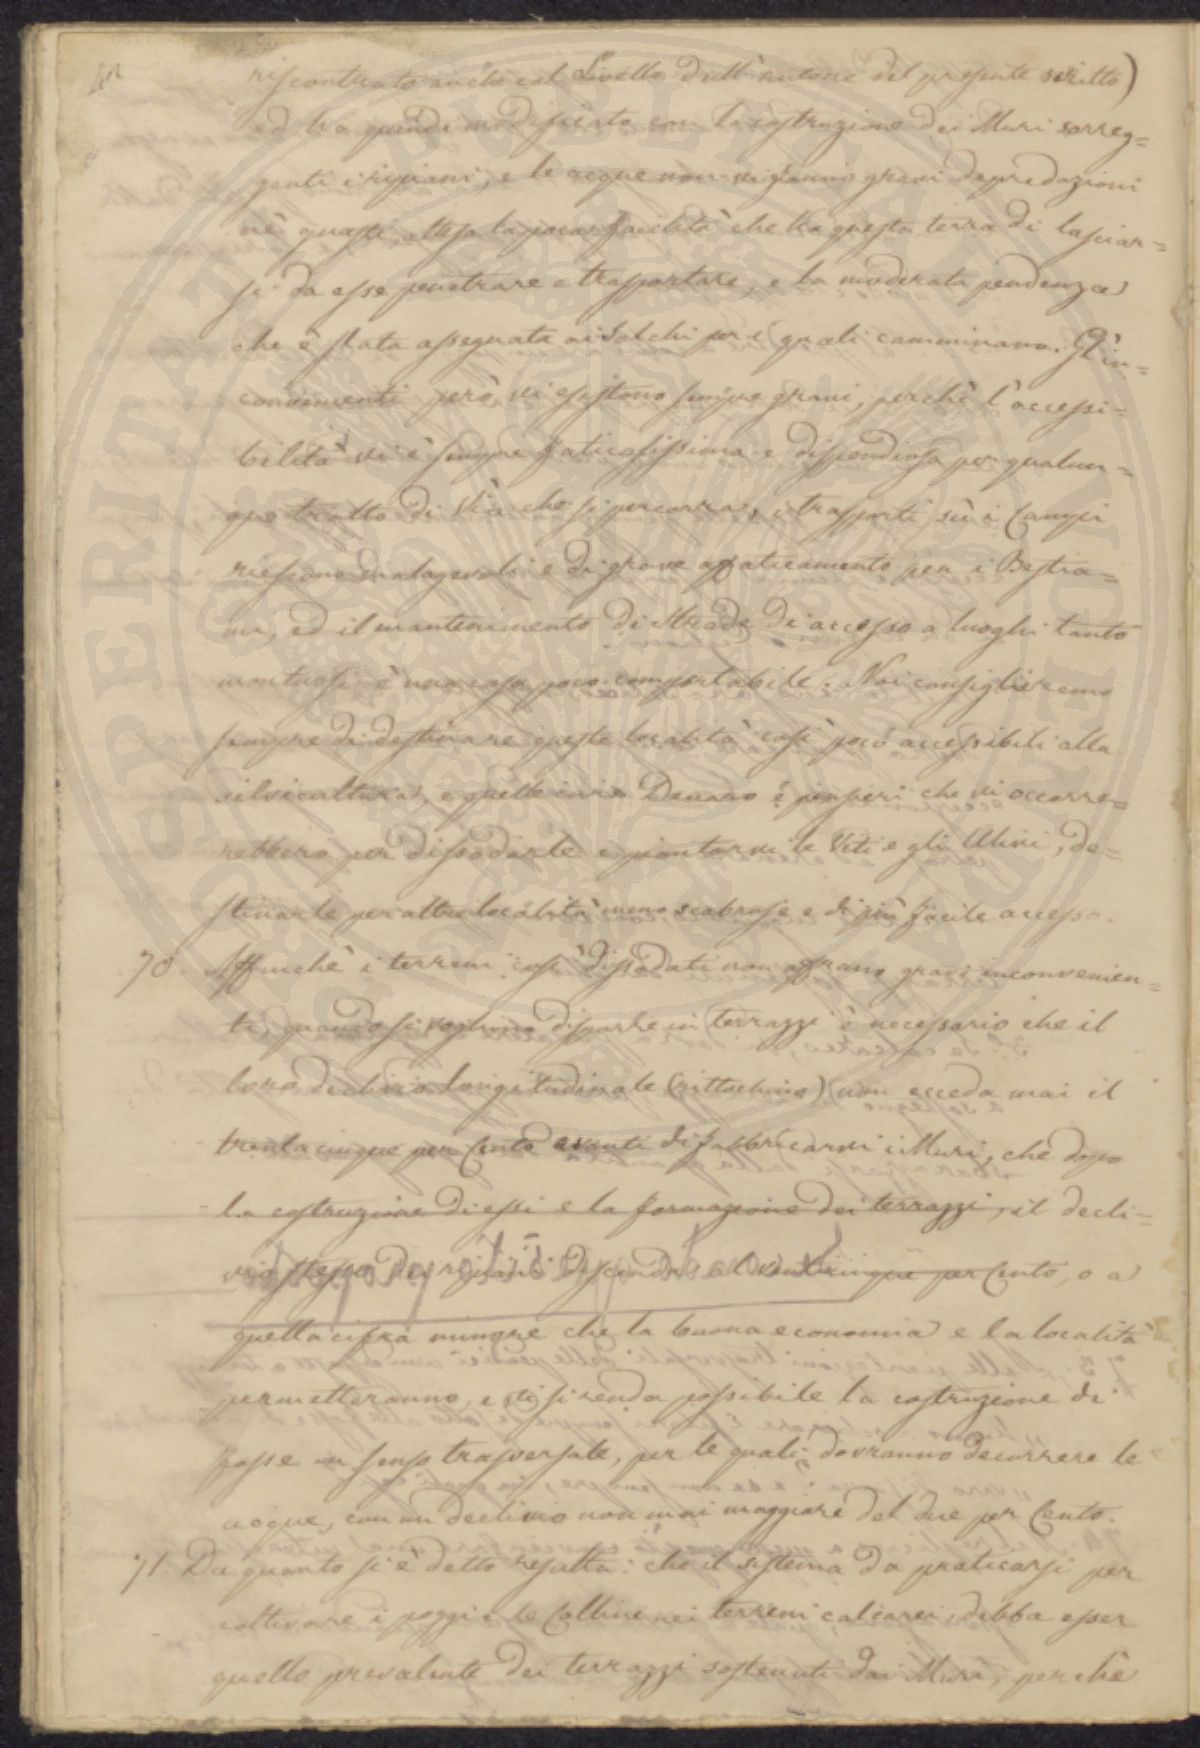 riscontrato anche col Livello dall'autore del presente scritto)
ed ha quindi modificato con la costruzione dei Muri sorreg=
genti i ripiani, e le acque non vi fanno gravi depredazioni
nè guasti, attesa la poca facilità che ha questa terra di lasciar=
si da esse penetrare e trasportare, e la moderata pendenza
che è stata assegnata ai solchi per i quali camminano. Gl'in=
convenienti però, vi esistono sempre gravi, perchè l'accessi=
bilità vi è sempre faticosissima e dispendiosa per qualun=
que tratto di via che si percorra, i trasporti sù i Campi
riescono malagevoli e di grave affaticamento per i Bestia=
mi, ed il mantenimento di strade di accesso a luoghi tanto
montuosi è una cosa poco comportabile. Noi consiglieremo
sempre di destinare queste località così poco accessibili alla
silvicultura, e quelle cure Denaro e pensieri che vi occorre=
rebbero per dissodarle e piantarvi le Viti e gli Ulivi, de=
stinarle per altre località meno scabrose e di più facile accesso.
70. Affinchè i terreni così dissodati non offrano gravi inconvenien=
ti, quando si vogliono disporre in terrazzi è necessario che il
loro declivio longitudinale (rittochino) non ecceda mai il
trentacinque per Cento avanti di fabbricarvi i Muri, che dopo
la costruzione di essi e la formazione dei terrazzi, il decli=
vio stesso dei ripiani discenda al venticinque per Cento, o a
quella cifra minore che la buona economia e la località
permetteranno, e vi si renda possibile la costruzione di
fosse in senso trasversale, per le quali dovranno decorrere le
acque, con un declivio non mai maggiore del due per Cento.
71. Da quanto si è detto resulta: che il sistema da praticarsi per
coltivare i poggi e le Colline nei terreni calcarei, debba esser
quello prevalente dei terrazzi sostenuti dai Muri, perchè
SPERITATE PUBLICAE AUGENDAE